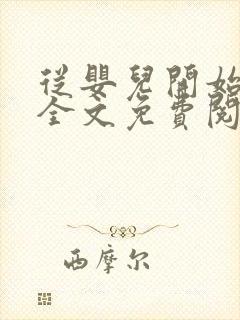 從嬰兒開始
全文免費閱
西摩尔